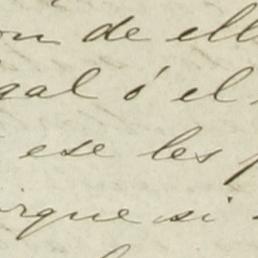 on de ell
gal ó el
ese les p
rque si